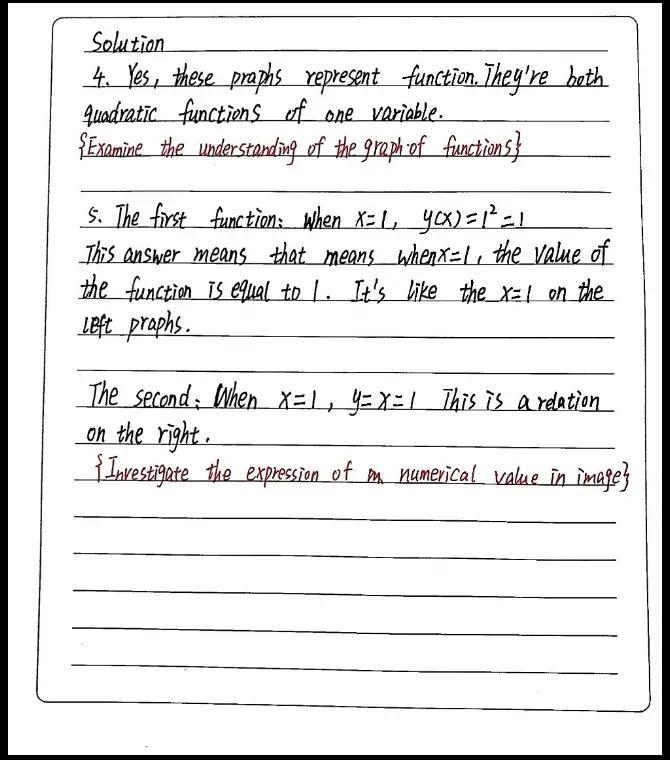 Solution
4. Yes, these praphs represent function. They're both
quadratic functions of one variable.
{Examine the understanding of the graph of functions}
5. The first function: When x=1, y(x)=1²=1
This answer means that means when x=1, the value of
the function is equal to 1. It's like the x=1 on the
left praphs.
The second: When x=1, y=x=1 This is a relation
on the right.
{Investigate the expression of numerical value in image}